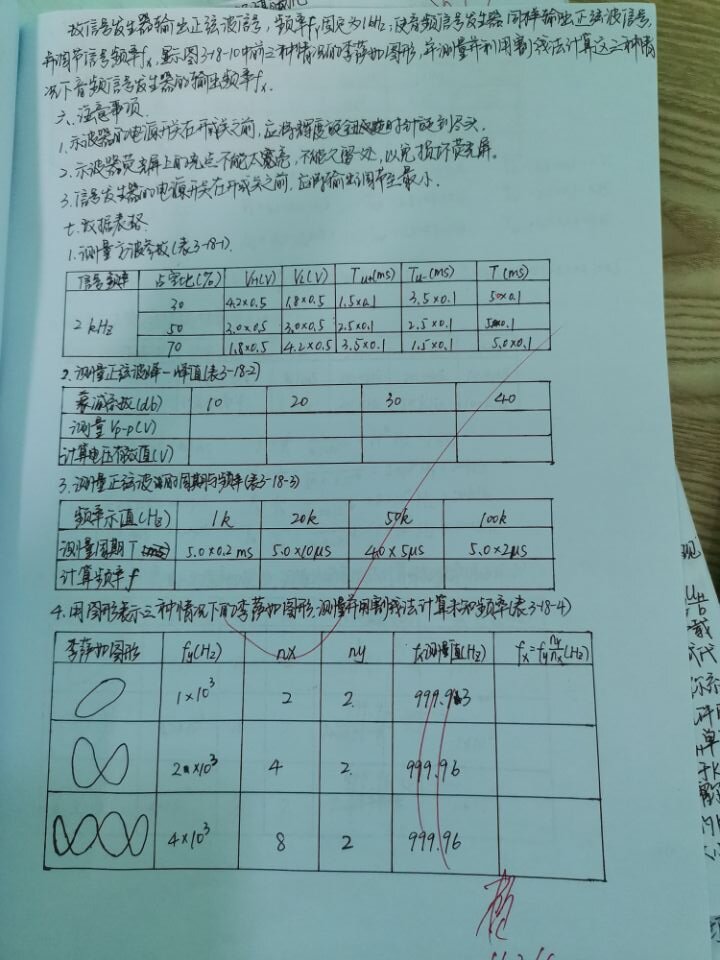 故信号发生器输出正弦波信号，频率fy固定为1kHz；使音频信号发生器同样输出正弦波信号，
并调节信号频率fx，显示图3-18-10中前三种情况的李萨如图形，并测量并利用割线法计算这三种情
况下音频信号发生器的输出频率fx.
六、注意事项.
1.示波器的电源开关在开或关之前，应将辉度旋钮逆时针旋到尽头.
2.示波器荧光屏上的光点不能太亮，不能久留一处，以免损坏荧光屏。
3.信号发生器的电源开关在开或关之前，应将输出调节至最小.
七、数据表格.
1.测量方波参数(表3-18-1).
信号频率 占空比(%) VH(V) VL(V) Tu+(ms) Tu-(ms) T(ms)
2kHz 30 4.2×0.5 1.8×0.5 1.5×0.1 3.5×0.1 5.0×0.1
50 3.0×0.5 3.0×0.5 2.5×0.1 2.5×0.1 5.0×0.1
70 1.8×0.5 4.2×0.5 3.5×0.1 1.5×0.1 5.0×0.1
2.测量正弦波峰-峰值(表3-18-2)
衰减倍数(db) 10 20 30 40
测量Vp-p(V)
计算电压有效值(V)
3.测量正弦波的周期与频率(表3-18-3)
频率示值(Hz) 1k 20k 50k 100k
测量周期T 5.0×0.2ms 5.0×10μs 4.0×5μs 5.0×2μs
计算频率f
4.用图形表示三种情况下的李萨如图形,测量并用割线法计算未知频率(表3-18-4)
李萨如图形 fy(Hz) nx ny fx测量值(Hz) fx=fy ny/nx(Hz)
1×10³ 2 2 999.93
2×10³ 4 2 999.96
4×10³ 8 2 999.96